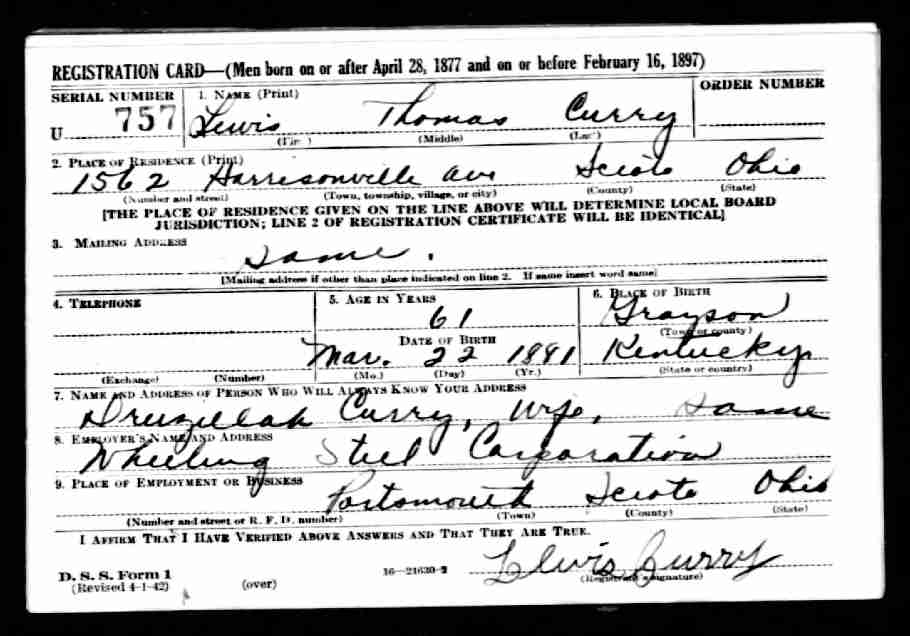 REGISTRATION CARD—(Men born on or after April 28, 1877 and on or before February 16, 1897)
SERIAL NUMBER 1. NAME (Print) ORDER NUMBER
U 757 Lewis Thomas Curry
(First) (Middle) (Last)
2. PLACE OF RESIDENCE (Print)
1562 Harrisonville Ave Scioto Ohio
(Number and street) (Town, township, village, or city) (County) (State)
[THE PLACE OF RESIDENCE GIVEN ON THE LINE ABOVE WILL DETERMINE LOCAL BOARD
JURISDICTION; LINE 2 OF REGISTRATION CERTIFICATE WILL BE IDENTICAL]
3. MAILING ADDRESS
Same.
[Mailing address if other than place indicated on line 2. If same insert word same]
4. TELEPHONE 5. AGE IN YEARS 6. PLACE OF BIRTH
61 Grayson
(Town or county)
DATE OF BIRTH
Mar. 22 1881 Kentucky
(Exchange) (Number) (Mo.) (Day) (Yr.) (State or country)
7. NAME AND ADDRESS OF PERSON WHO WILL ALWAYS KNOW YOUR ADDRESS
Druzillah Curry, Wife, Same
8. EMPLOYER'S NAME AND ADDRESS
Wheeling Steel Corporation
9. PLACE OF EMPLOYMENT OR BUSINESS
Portsmouth Scioto Ohio
(Number and street or R. F. D. number) (Town) (County) (State)
I AFFIRM THAT I HAVE VERIFIED ABOVE ANSWERS AND THAT THEY ARE TRUE.
Lewis Curry
D. S. S. Form 1 16—21630-2 (Registrant's signature)
(Revised 4-1-42) (over)